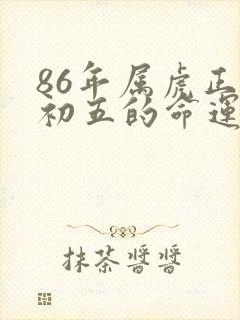 86年属虎正
初五的命运
抹茶酱酱